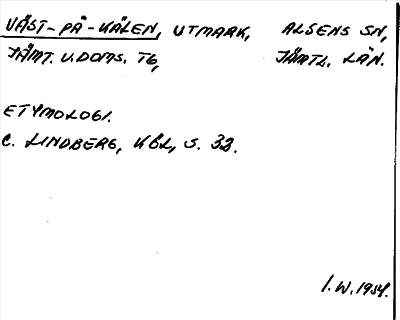 VÄST-PÅ-KÄLEN, UTMARK, ALSENS SN,
JÄMT. U. DOMS. TG, JÄMTL. LÄN.
ETYMOLOGI.
C. LINDBERG, KBL, S. 33.
I.W. 1954.